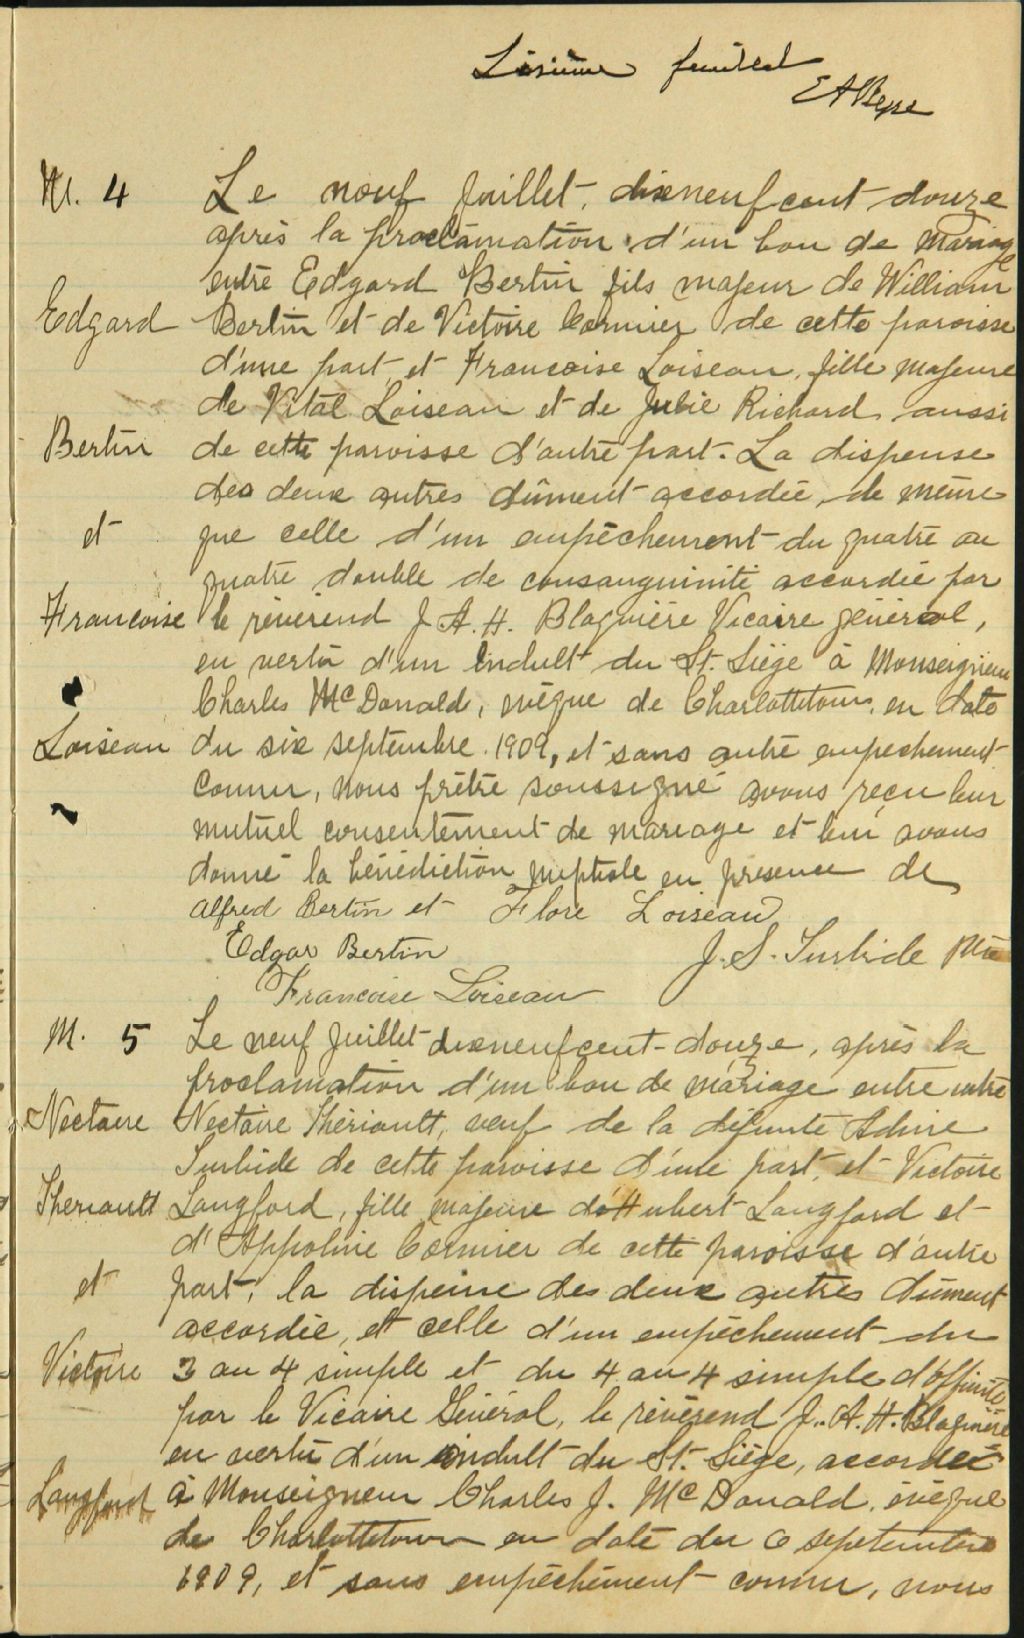 feuillet
M. 4
Le neuf Juillet, dixneufcent douze
après la proclamation d'un ban de Mariage
entre Edgard Bertin fils majeur de William
Edgard
Bertin et de Victoire Cormier de cette paroisse
d'une part et Francoise Loiseau, fille majeure
de Vital Loiseau et de Julie Richard aussi
Bertin
de cette paroisse d'autre part. La dispense
des deux autres dûment accordée, de même
et
que celle d'un empêchement du quatre au
quatre double de consanguinité accordée par
Francoise
le révérend J. A. H. Blaquière Vicaire général,
en vertu d'un Indult du St. Siège à Monseigneur
Charles McDonald, évêque de Charlottetown, en date
Loiseau
du six septembre 1909, et sans autre empechement
connu, nous prêtre soussigné avons reçu leur
mutuel consentement de mariage et leur avons
donné la bénédiction nuptiale en présence de
Alfred Bertin et Flore Loiseau
Edgar Bertin
J. S. Turbide Ptre
Francoise Loiseau
M. 5
Le neuf Juillet dixneufcent-douze, après la
proclamation d'un ban de mariage entre entre
Nectaire
Nectaire Thériault, veuf de la défunte
Turbide de cette paroisse d'une part, et Victoire
Theriault
Langford, fille majeure d'Hubert Langford et
d'Appoline Cormier de cette paroisse d'autre
et
part; la dispense des deux autres dûment
accordée, et celle d'un empêchement du
Victoire
3 au 4 simple et du 4 au 4 simple d'affinité
par le Vicaire Général, le révérend J. A. H. Blaquière
en vertu d'un indult du St. Siège, accordé
Langford
à Monseigneur Charles J. McDonald, évêque
de Charlottetown en date du 6 septembre
1909, et sans empêchement connu, nous